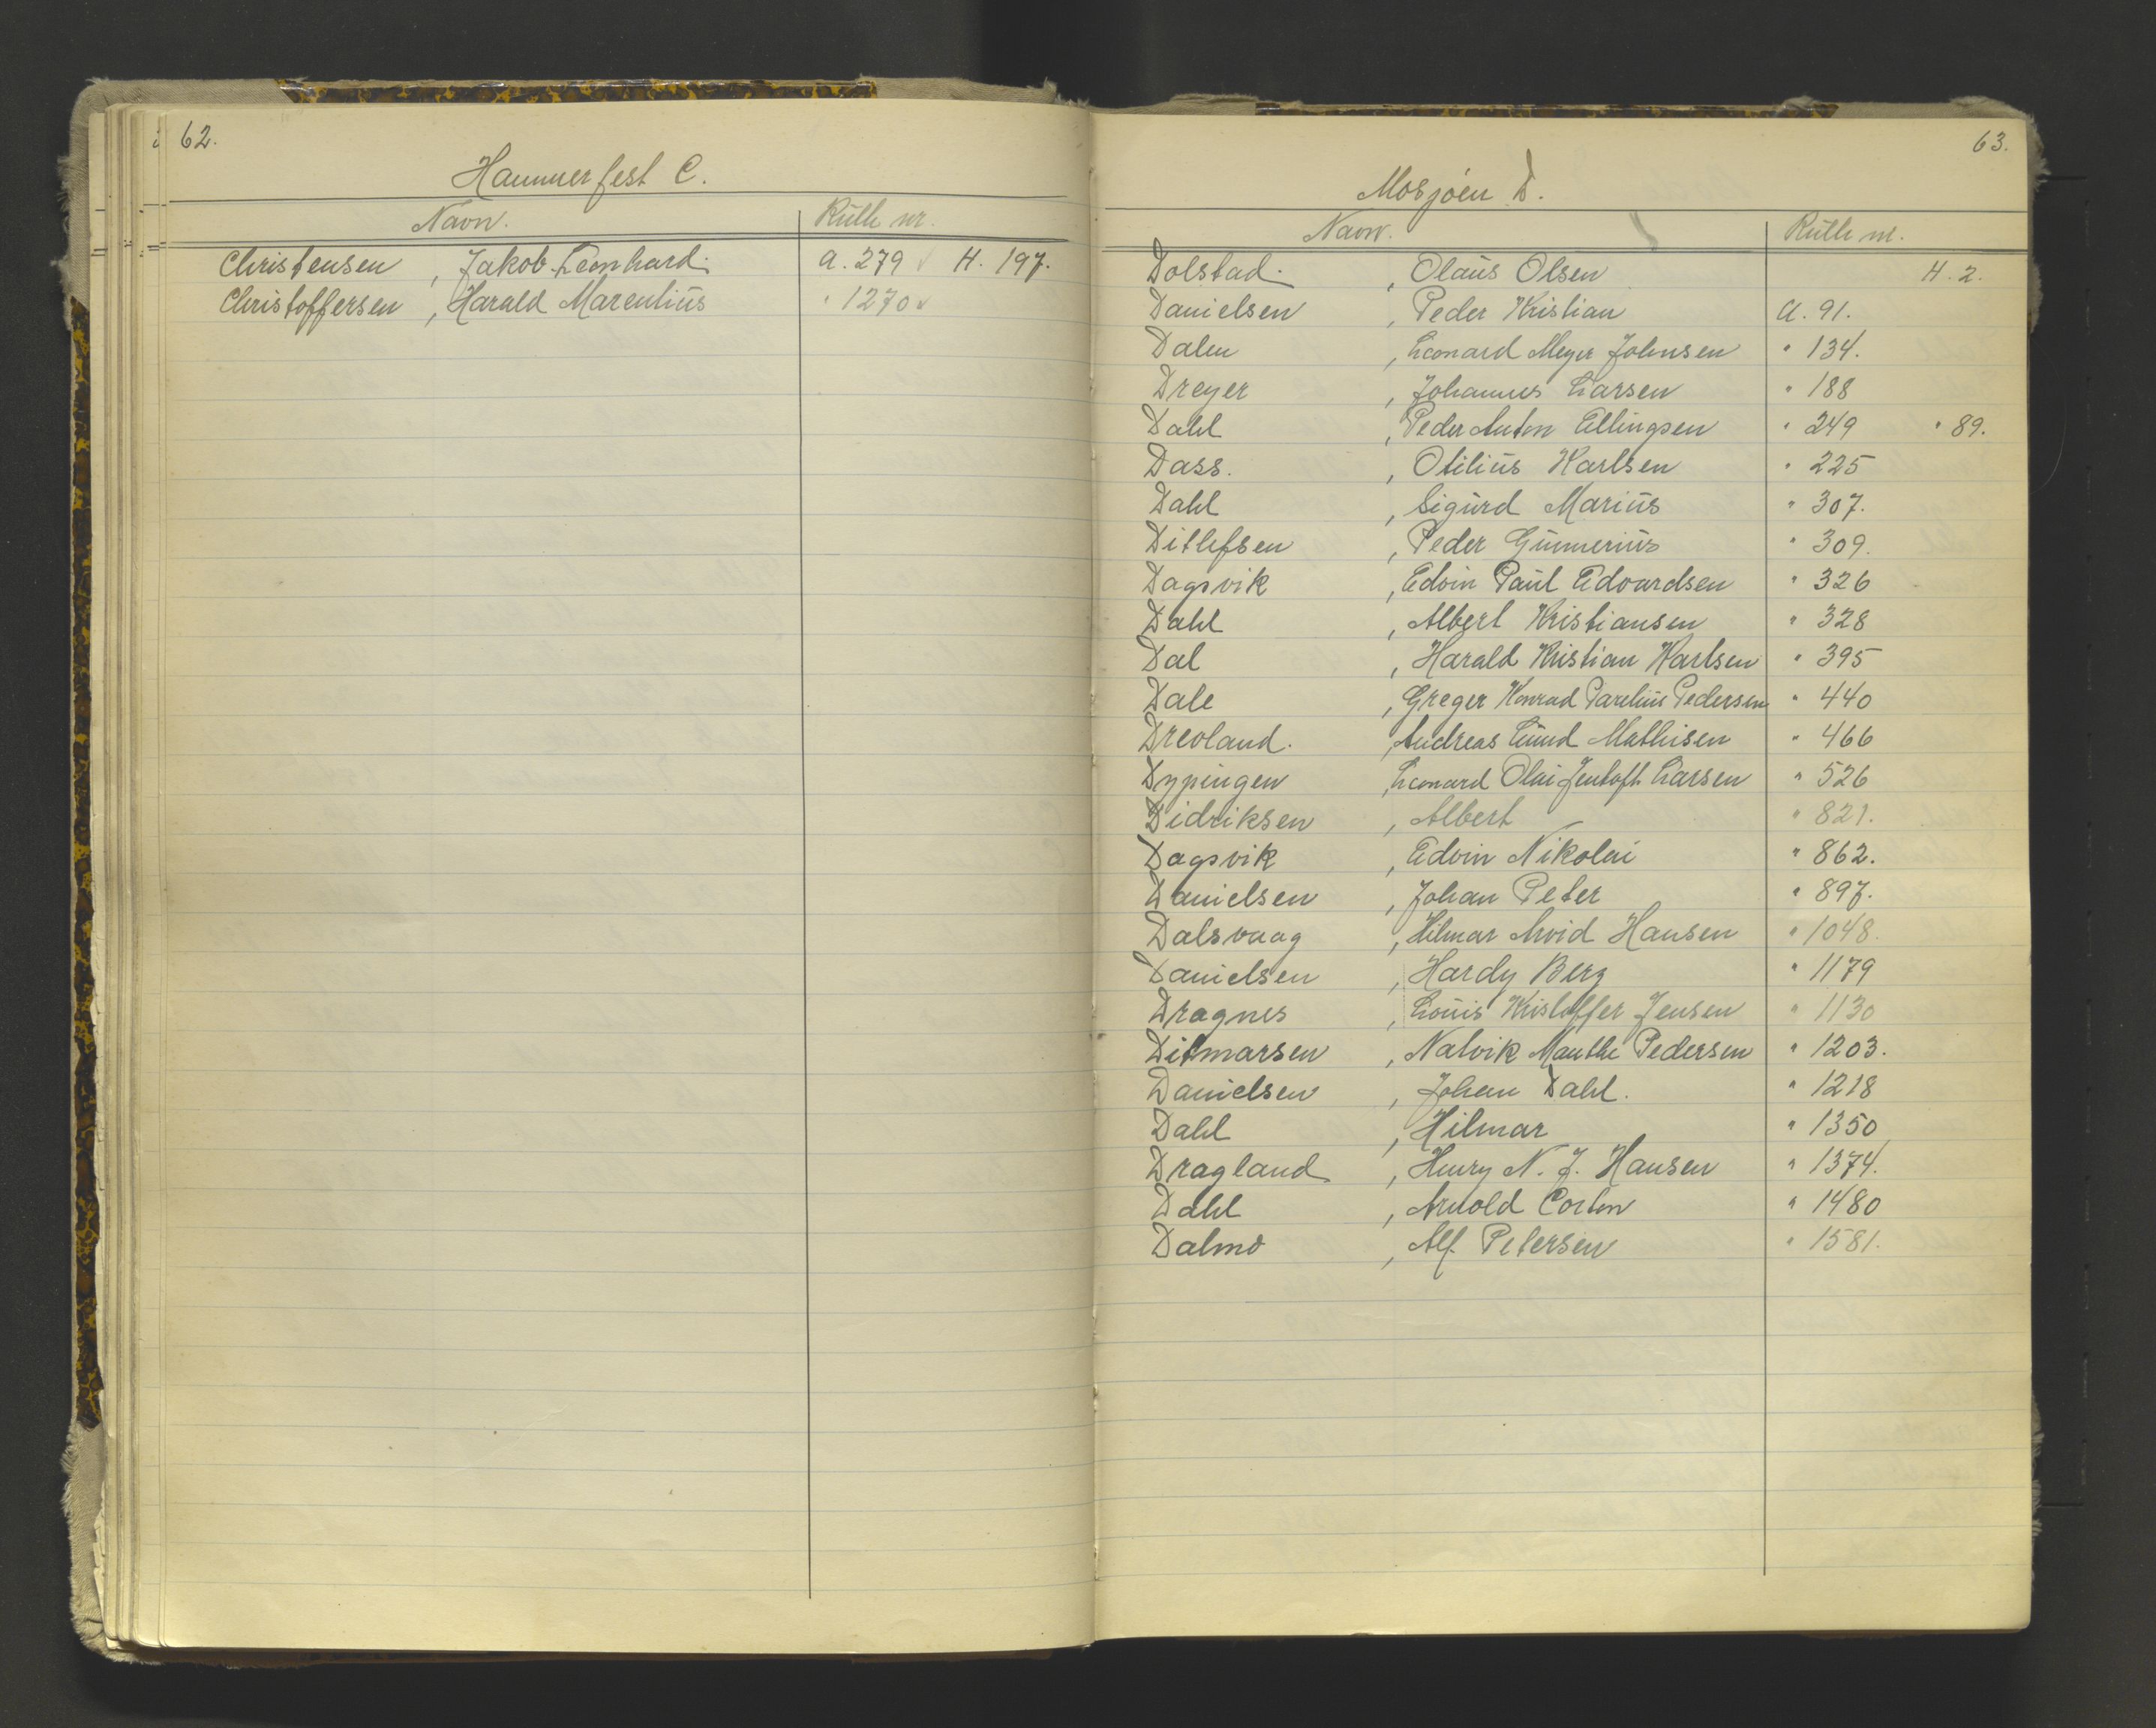 62.
Hammerfest C.
Navn. Rulle nr.
Christensen, Jakob Leonhard. A. 279 ✓ H. 197.
Christoffersen, Harald Marentius " 1270 ✓
63.
Mosjøen D.
Navn. Rulle nr.
Dolstad., Olaus Olsen H. 2.
Danielsen, Peder Kristian A. 91.
Dalen, Leonard Meyer Johnsen " 134.
Dreyer, Johannes Larsen " 188
Dahl, Peder Anton Ellingsen " 249 " 89.
Dass., Otilius Karlsen " 225
Dahl, Sigurd Marius " 307.
Ditlefsen, Peder Gunnerius " 309.
Dagsvik, Edvin Paul Edvardsen " 326
Dahl, Albert Kristiansen " 328
Dal, Harald Kristian Karlsen " 395
Dale, Greger Konrad Parelius Pedersen " 440
Drevland., Andreas Lund Mathisen " 466
Dypingen, Leonard Olai Jentoft Larsen " 526
Didriksen, Albert " 821.
Dagsvik, Edvin Nikolai " 862.
Danielsen, Johan Peter " 897.
Dalsvaag, Hilmar Arvid Hansen " 1048.
Danielsen, Hardy Berg " 1179
Dragnes, Louis Kristoffer Jensen " 1130
Ditmarsen, Nalvik Manthe Pedersen " 1203.
Danielsen, Johan Dahl. " 1218
Dahl, Hilmar " 1350
Dragland, Henry N. J. Hansen " 1374.
Dahl, Arnold Corton " 1480
Dalmo, Alf Petersen " 1581.